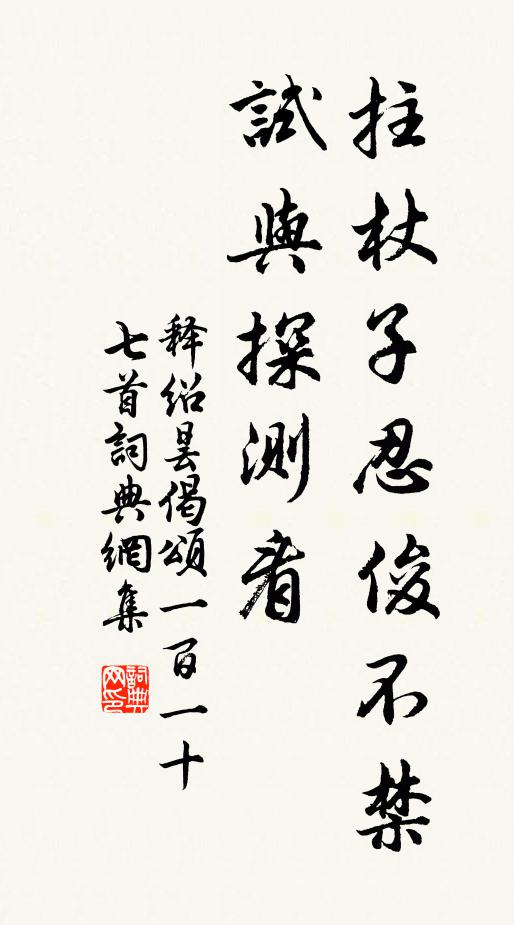 拄杖子忍俊不禁
試與探測看
释绍昙偈頌一百一十
七首詞典網集
詞典网印